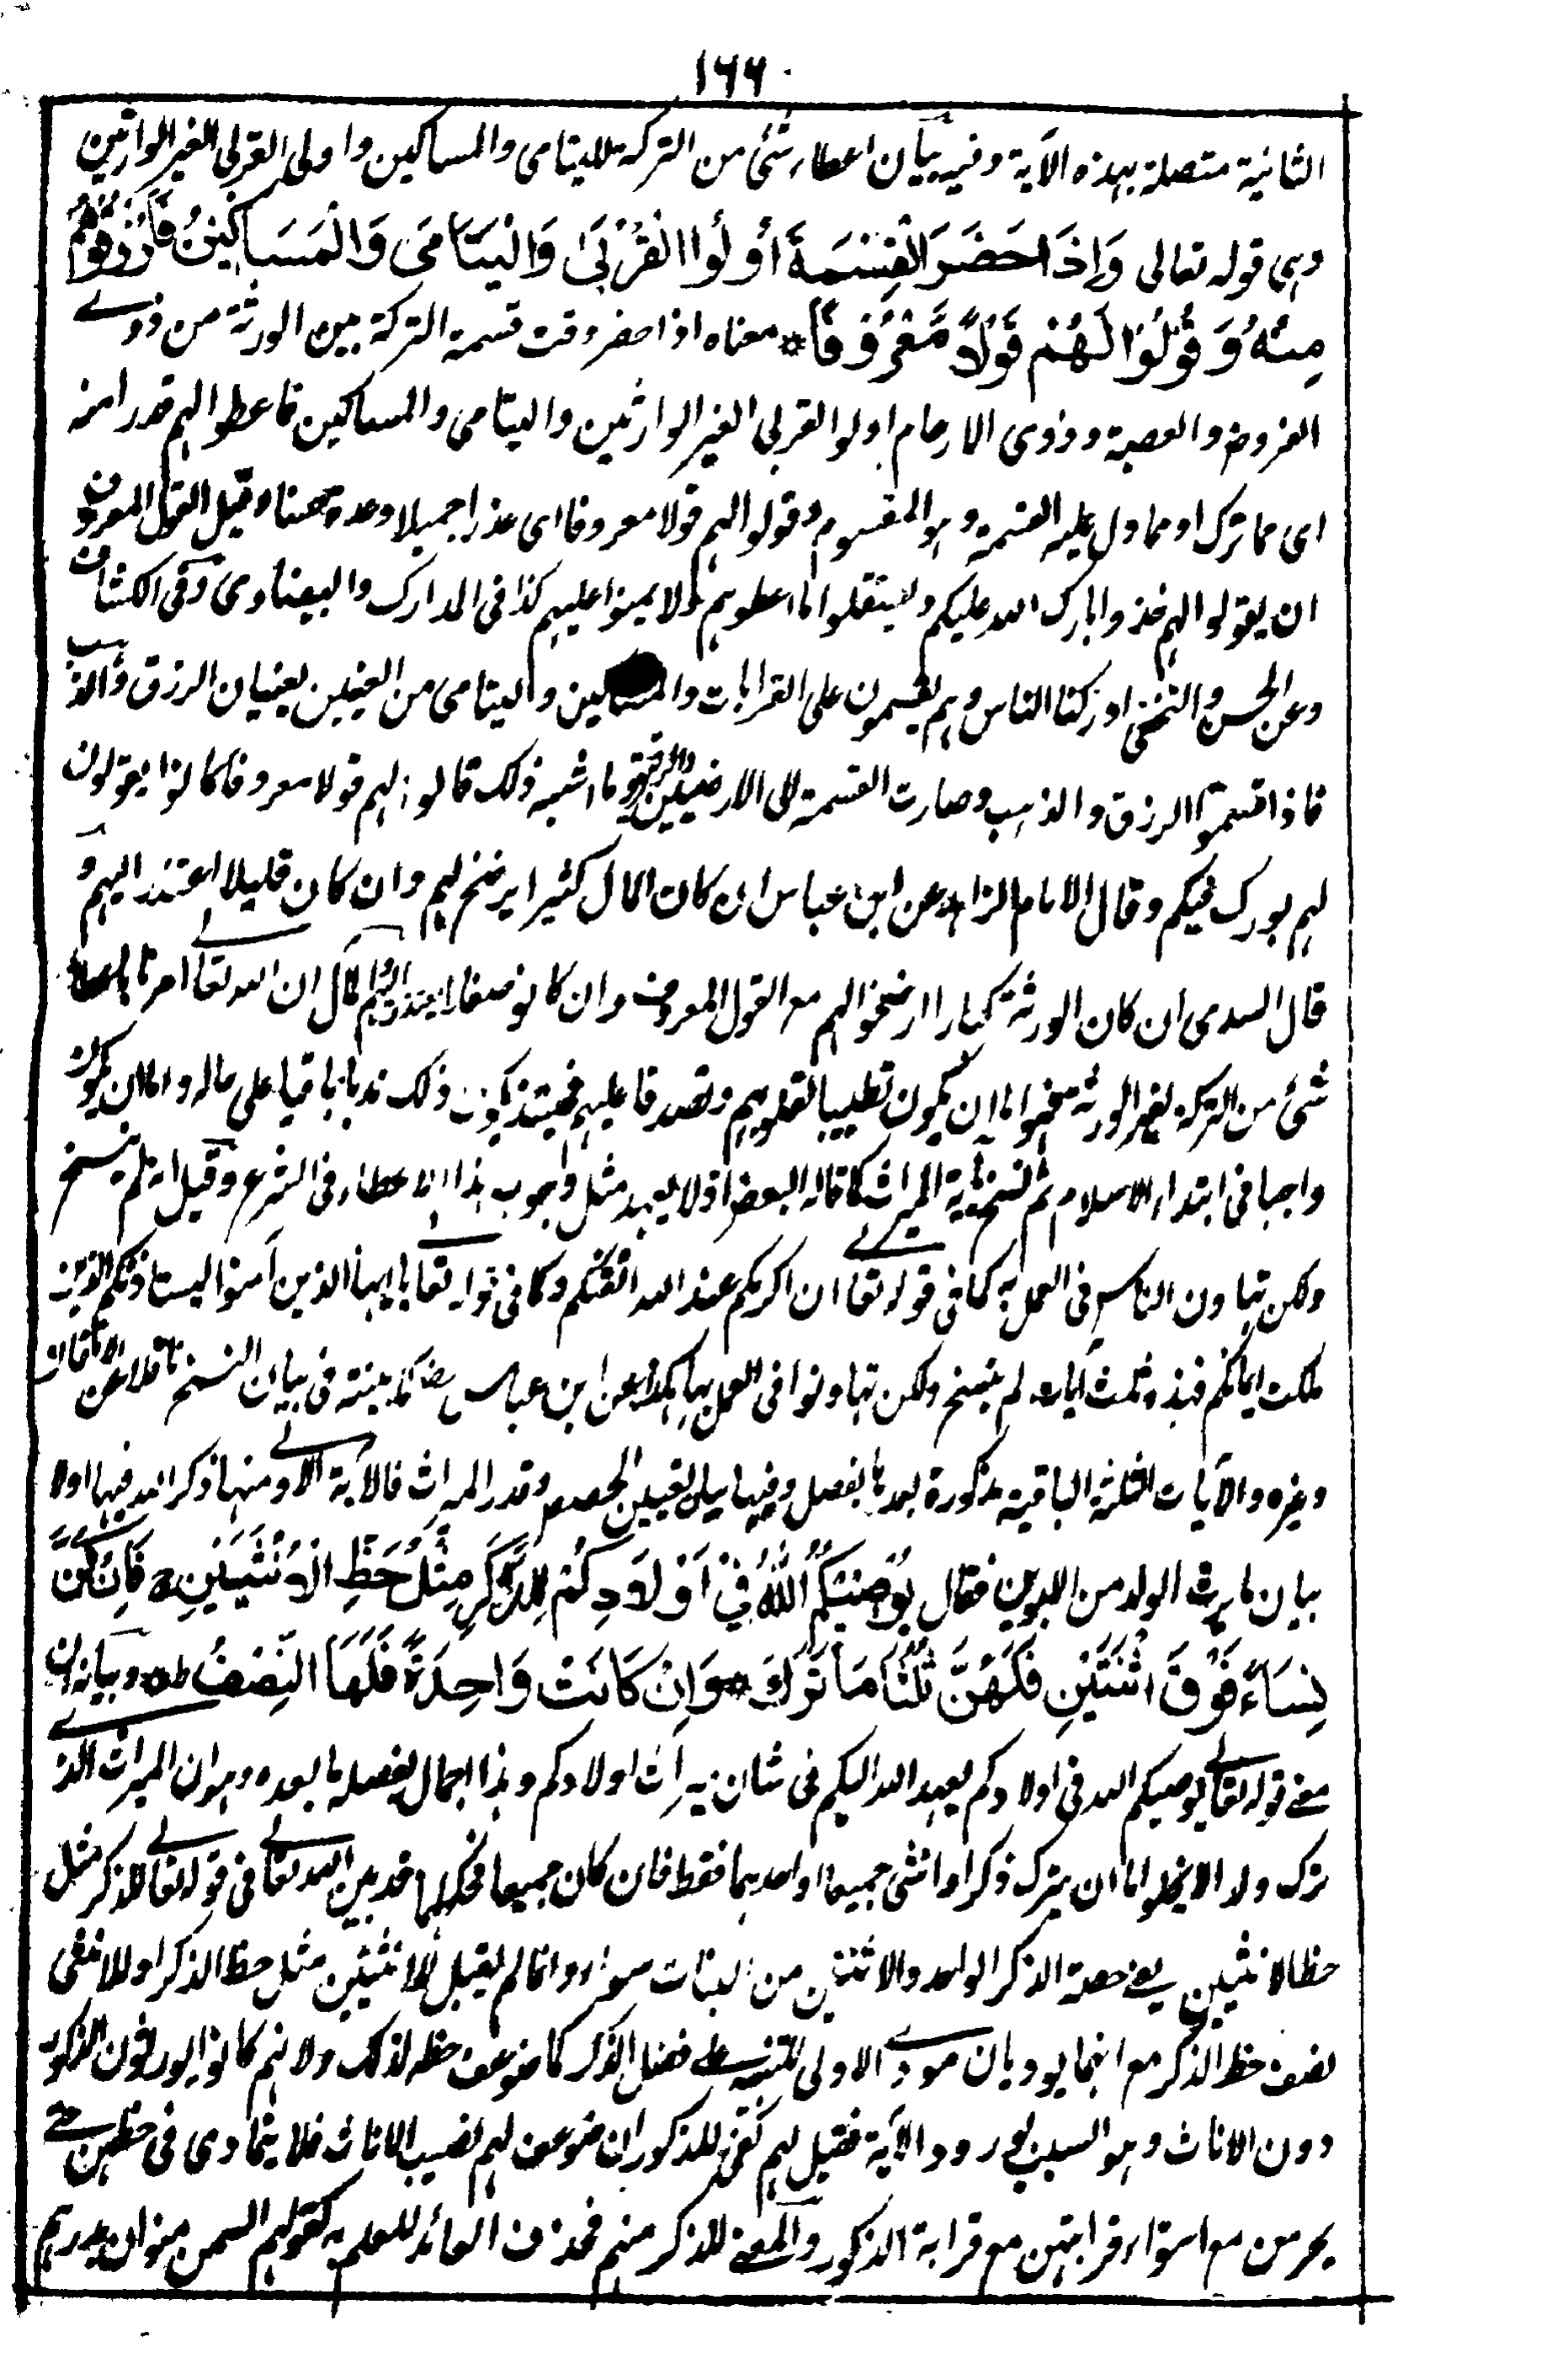 ١٦٦
الثانية متصلة بهذه الآية وفيه بيان اعطاء شئ من التركة لليتامى والمساكين واولى القربى الغير الوارثين
وهى قوله تعالى وَاِذَا حَضَرَ الْقِسْمَةَ اُولُوا الْقُرْبٰى وَالْيَتَامٰى وَالْمَسَاكِيْنُ فَارْزُقُوْهُمْ
مِنْهُ وَقُوْلُوْا لَهُمْ قَوْلًا مَّعْرُوْفًا * معناه اذا حضر وقت قسمة التركة بين الورثة من ذوى
الفروض والعصبة وذوى الارحام اولو القربى الغير الوارثين واليتامى والمساكين فاعطوا لهم قدرا منه
اى مما ترك او مما دل عليه القسمة وهو المقسوم وقولوا لهم قولا معروفا اى عذرا جميلا وعدة حسنا وقيل القول المعروف
ان يقولوا لهم خذوا بارك الله عليكم ويستقلوا ما اعطوهم ولا يمنوا عليهم كذا فى المدارك والبيضاوى وفى الكشاف
وعن الحسن والنخعى ادركنا الناس وهم يقسمون على القرابات والمساكين واليتامى من العينين يعنيان الرزق والذهب
فاذا قسموا الرزق والذهب وصارت القسمة الى الارضين والرقيق وما اشبه ذلك قالوا لهم قولا معروفا كانوا يقولون
لهم بورك فيكم وقال الامام الزاهد عن ابن عباس ان كان المال كثيرا يرضخ لهم وان كان قليلا اعتذر اليهم و
قال السدى ان كان الورثة كبارا ارضخوا لهم مع القول المعروف وان كانوا صغارا يعتذر اليهم قال ان الله تعالى امرنا باعطاء
شئ من التركة لغير الورثة فهو اما ان يكون تطييبا لقلوبهم وتصدقا عليهم فحينئذ يكون ذلك ندبا باقيا على حاله واما ان يكون
واجبا فى ابتداء الاسلام ثم نسخ بآية الميراث كما قاله البعض اذ لا يعهد مثل وجوب هذا الاعطاء فى الشرع وقيل انه لم ينسخ
ولكن تهاون الناس فى العمل به كما فى قوله تعالى ان اكرمكم عند الله اتقىكم وكما فى قوله تعالى يا ايها الذين آمنوا ليستاذنكم الذين
ملكت ايمانكم فهذه ثلث آيات لم ينسخ ولكن تهاونوا فى العمل بها هكذا عن ابن عباس رض كما بينته فى بيان النسخ ناقلا عن الاتقان
وغيره والآيات الثلثة الباقية مذكورة بعدها بفصل وفيها بيان تعيين الحصص وقدر الميراث فالآية الاولى منها ذكر الله فيها اولا
بيان ما يرث الولد من الابوين فقال يُوْصِيْكُمُ اللّٰهُ فِيْ اَوْلَادِكُمْ لِلذَّكَرِ مِثْلُ حَظِّ الْاُنْثَيَيْنِ ج فَاِنْ كُنَّ
نِسَاءً فَوْقَ اثْنَتَيْنِ فَلَهُنَّ ثُلُثَا مَا تَرَكَ * وَاِنْ كَانَتْ وَاحِدَةً فَلَهَا النِّصْفُ ط * وبيانه ان
معنى قوله تعالى يوصيكم الله فى اولادكم يعهد الله اليكم فى شان ميراث اولادكم وهذا اجمال يفصله ما بعده وهو ان الميراث الذى
ترك ولدا لا يخلو اما ان يترك ذكرا وانثى جميعا او احدهما فقط فان كان جميعا فحكمهما قد بين الله تعالى فى قوله تعالى للذكر مثل
حظ الانثيين يعنى حصة الذكر الواحد والاثنتين من البنات سواء وانما لم يقل للانثيين مثل حظ الذكر او للانثى
نصف حظ الذكر مع انهما يوديان مودى الاولى للتنبيه على فضل الذكر كما ضوعف حظه لذلك ولانهم كانوا يورثون الذكور
دون الاناث وهو السبب لورود الآية فقيل لهم كفى للذكور ان ضوعف لهم نصيب الاناث فلا يتمادى فى حظهن حتى
يحرمن مع استواء قرابتهن مع قرابة الذكور والمعنى للذكر منهم فحذف العائد للعلم به كقولهم السمن منوان بدرهم